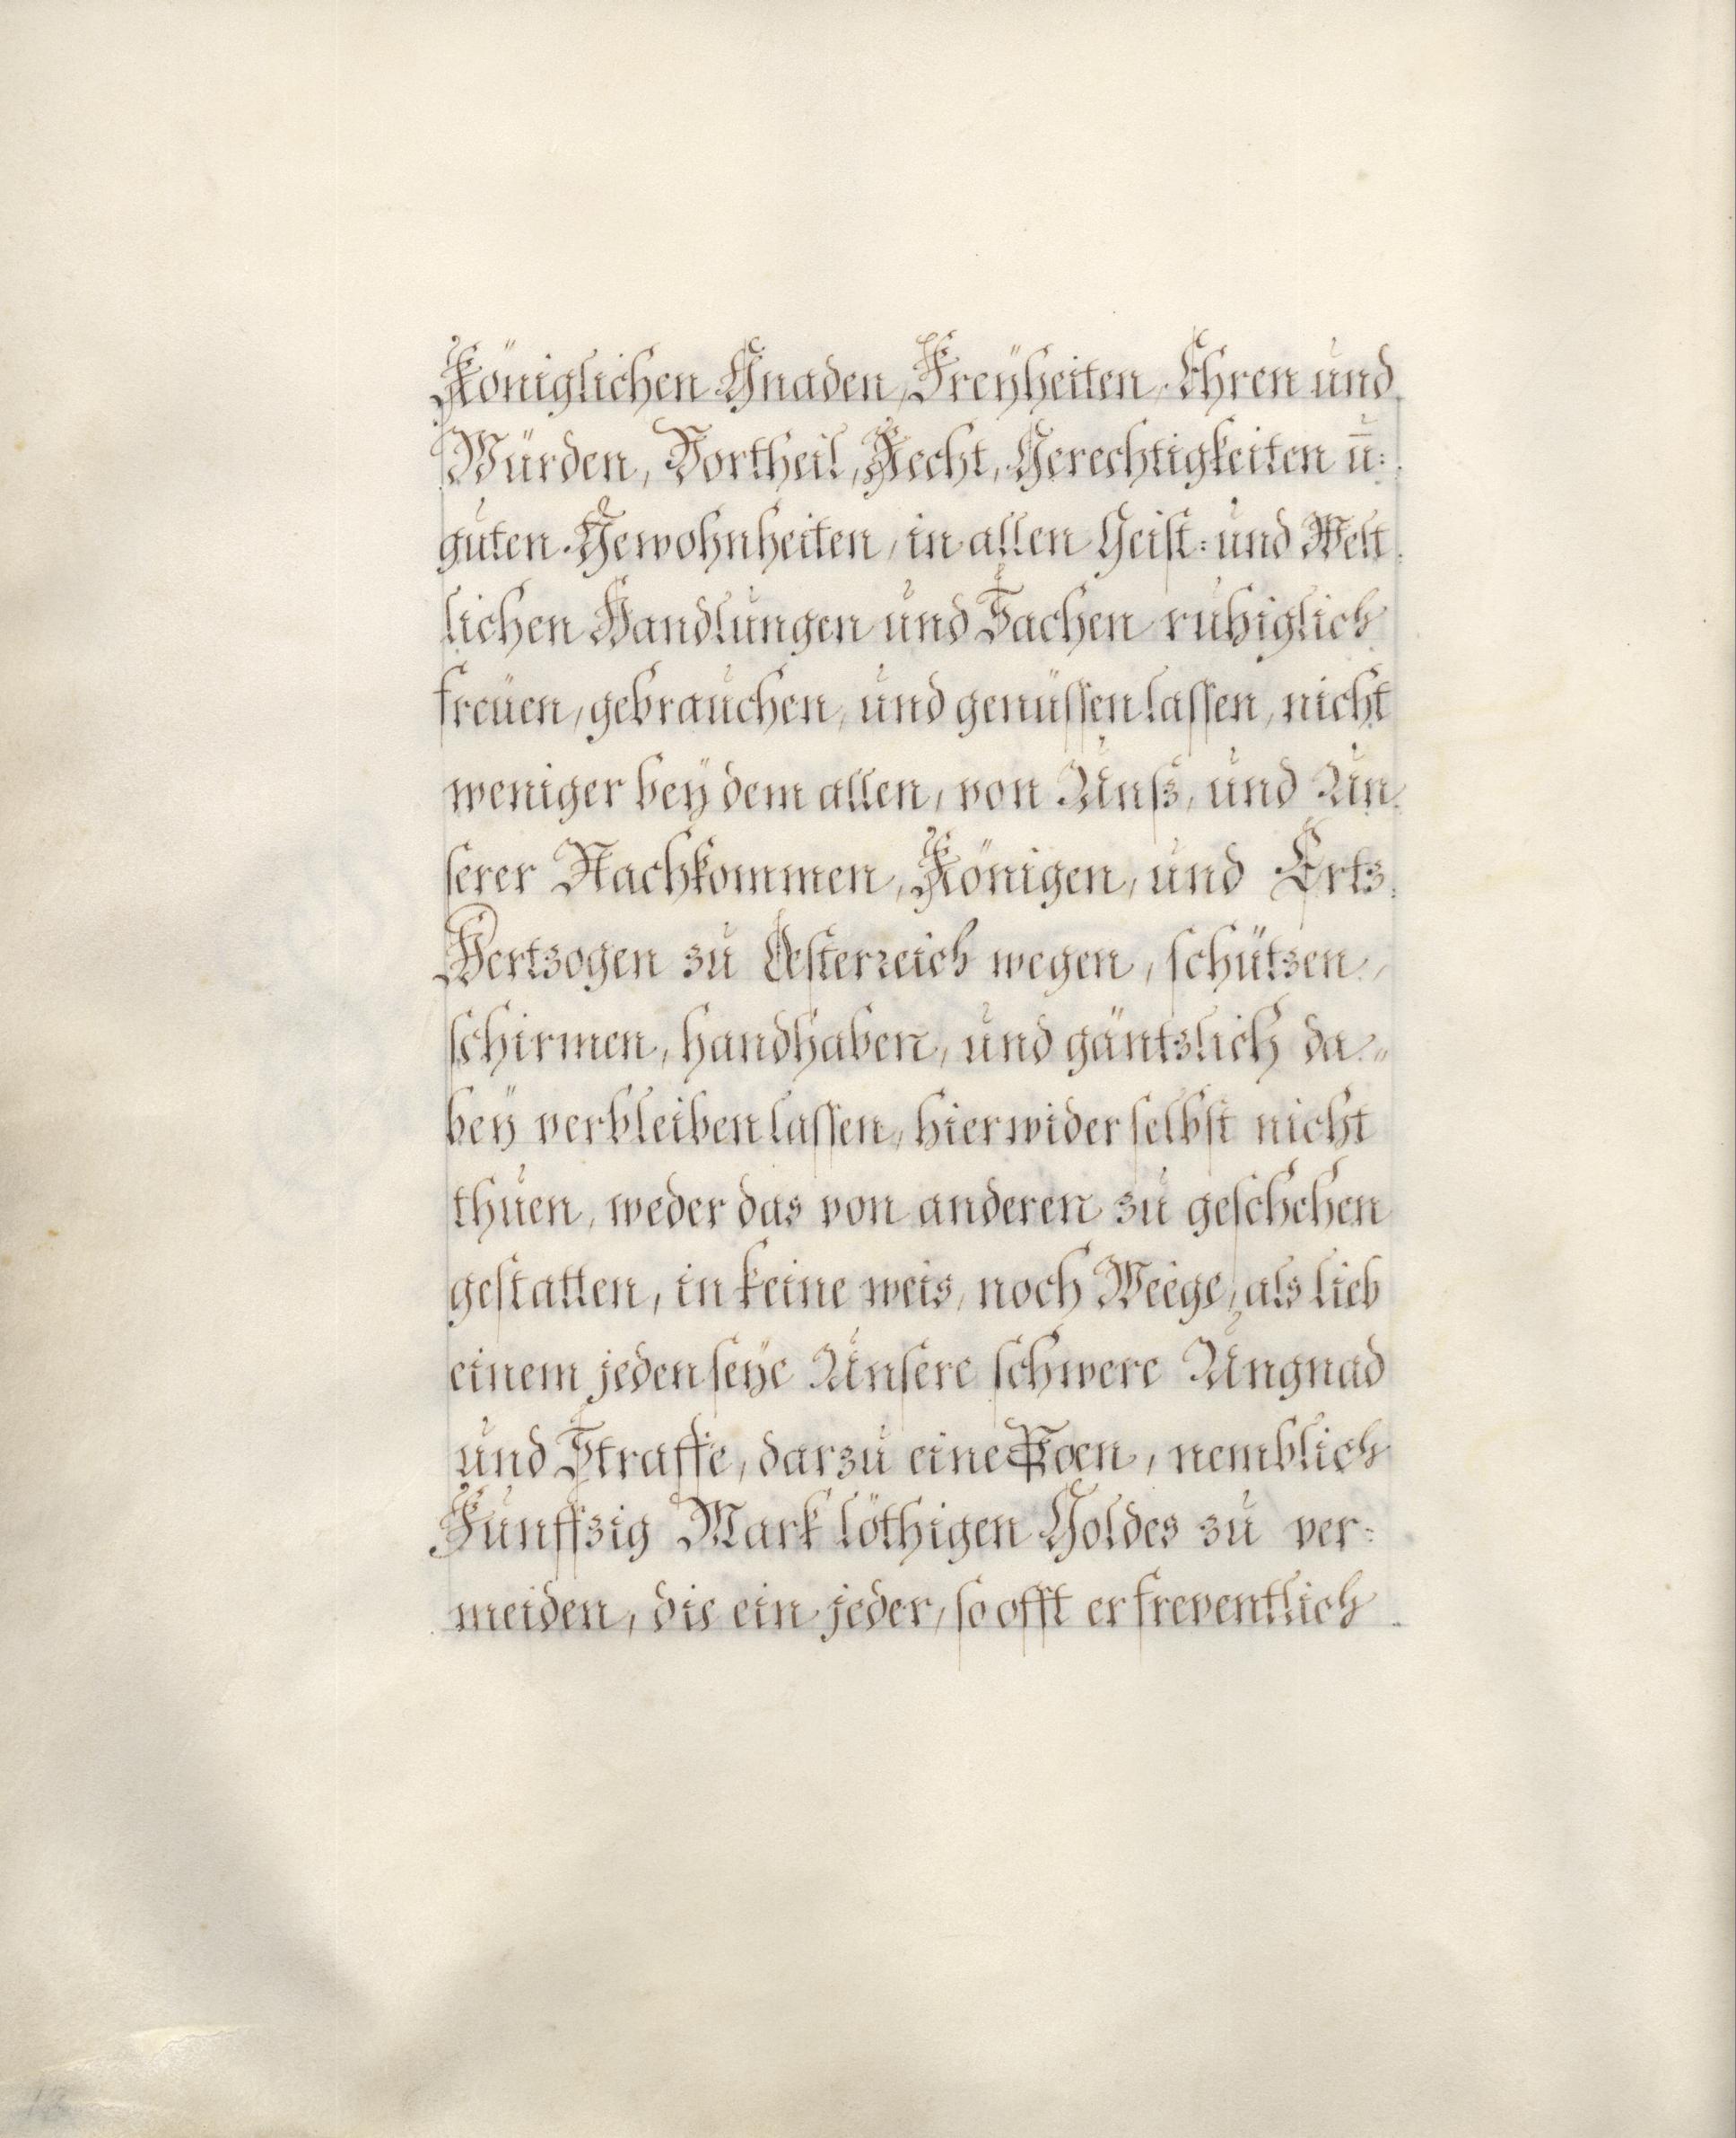 Königlichen Gnaden, Freyheiten, Ehren und
Würden, Vortheil, Recht, Gerechtigkeiten uñ:
guten Gewohnheiten, in allen Geist: und Welt
lichen Handlungen und Sachen ruhiglich
freuen, gebrauchen, und genüssen lassen, nicht
weniger bey dem allen, von Unß, und Un
serer Nachkommen, Königen, und Ertz
Hertzogen zu Österreich wegen, schützen,
schirmen, handhaben, und gäntzlich da„
bey verbleiben lassen, hierwider selbst nicht
thuen, weder das von anderen zu geschehen
gestatten, in keine weis, noch Weege, als lieb
einem jeden seye Unsere schwere Ungnad
und Straffe, darzu eine Poen, nemblich
Funffzig Mark löthigen Goldes zu ver:
meiden, die ein jeder, so offt er freventlich